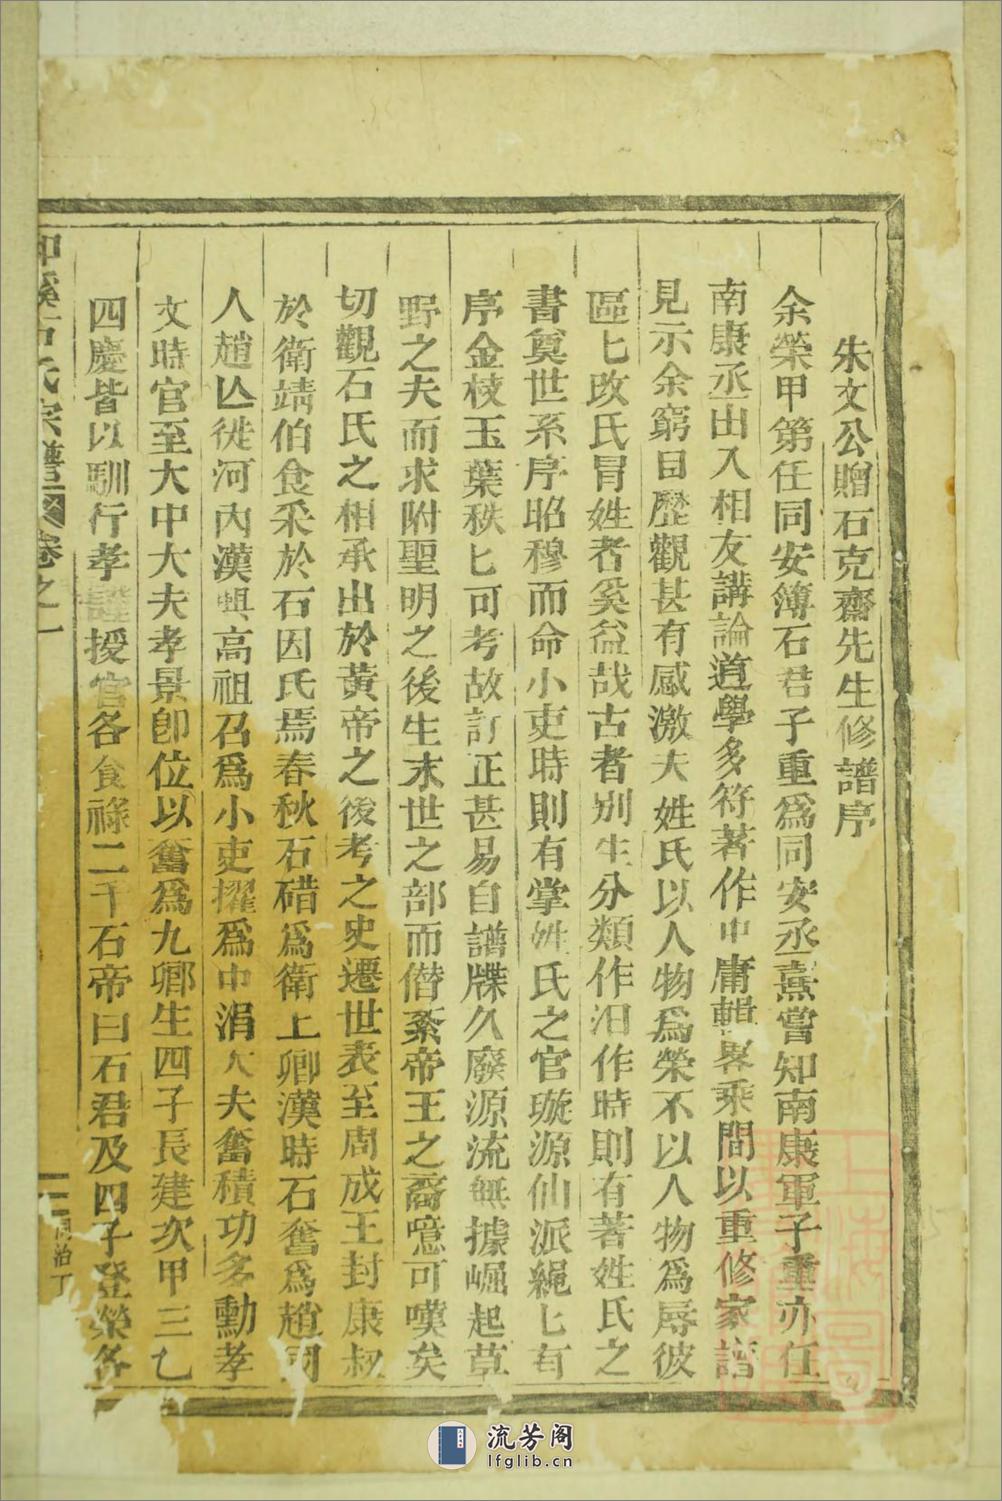 朱文公贈石克齋先生修譜序
余榮甲第任同安簿石君子重爲同安丞熹嘗知南康軍子重亦任
南康丞出入相友講論道學多符著作中庸輯畧乘間以重修家譜
見示余窮目歷觀甚有感激夫姓氏以人物爲榮不以人物爲辱彼
區匕改氏冐姓者奚益哉古者別生分類作汨作時則有著姓氏之
書奠世系序昭穆而命小吏時則有掌姓氏之官璇源仙派繩匕有
序金枝玉葉秩匕可考故訂正甚易自譜牒久廢源流無據崛起草
野之夫而求附聖明之後生末世之部而僭紊帝王之裔噫可嘆矣
切觀石氏之相承出於黃帝之後考之史遷世表至周成王封康叔
於衛靖伯食采於石因氏焉春秋石碏爲衛上卿漢時石奮爲趙國
人趙亾徙河內漢興高祖召爲小吏擢爲中涓大夫奮積功多勳孝
文時官至大中大夫孝景卽位以奮爲九卿生四子長建次甲三乙
四慶皆以馴行孝謹授官各食祿二千石帝曰石君及四子登榮各
石氏宗譜 卷之一
二 同治丁
流芳阁
lfglib.cn